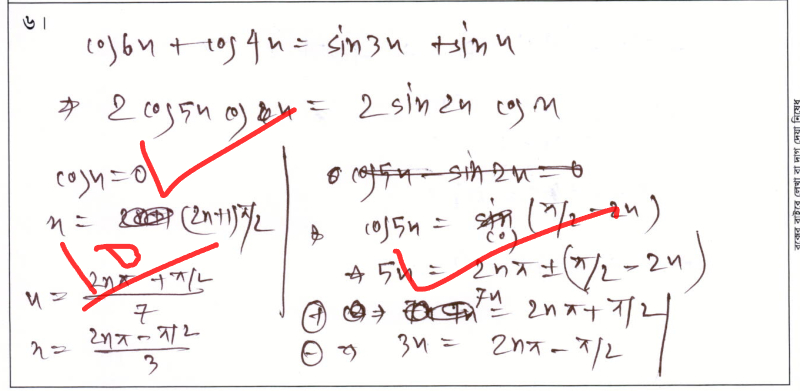 ৬।
cos6x + cos4x = sin3x + sinx
⇒ 2 cos5x cosx = 2 sin2x cosx
cosx = 0
x = (2n+1)π/2
x = (2nπ + π/2)/7
x = (2nπ - π/2)/3
cos5x - sin2x = 0
⇒ cos5x = cos(π/2 - 2x)
⇒ 5x = 2nπ ± (π/2 - 2x)
(+) ⇒ 7x = 2nπ + π/2
(-) ⇒ 3x = 2nπ - π/2
বক্সের বাইরে লেখা বা দাগ দেয়া নিষেধ